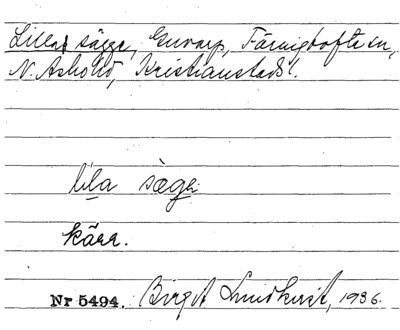 Lilla sägge, Guvarp, Färingtofta sn,
N. Åsbo hd, Kristianstads l.
lila sæge
kärr.
Nr 5494. Birgit Lundkvist, 1936.